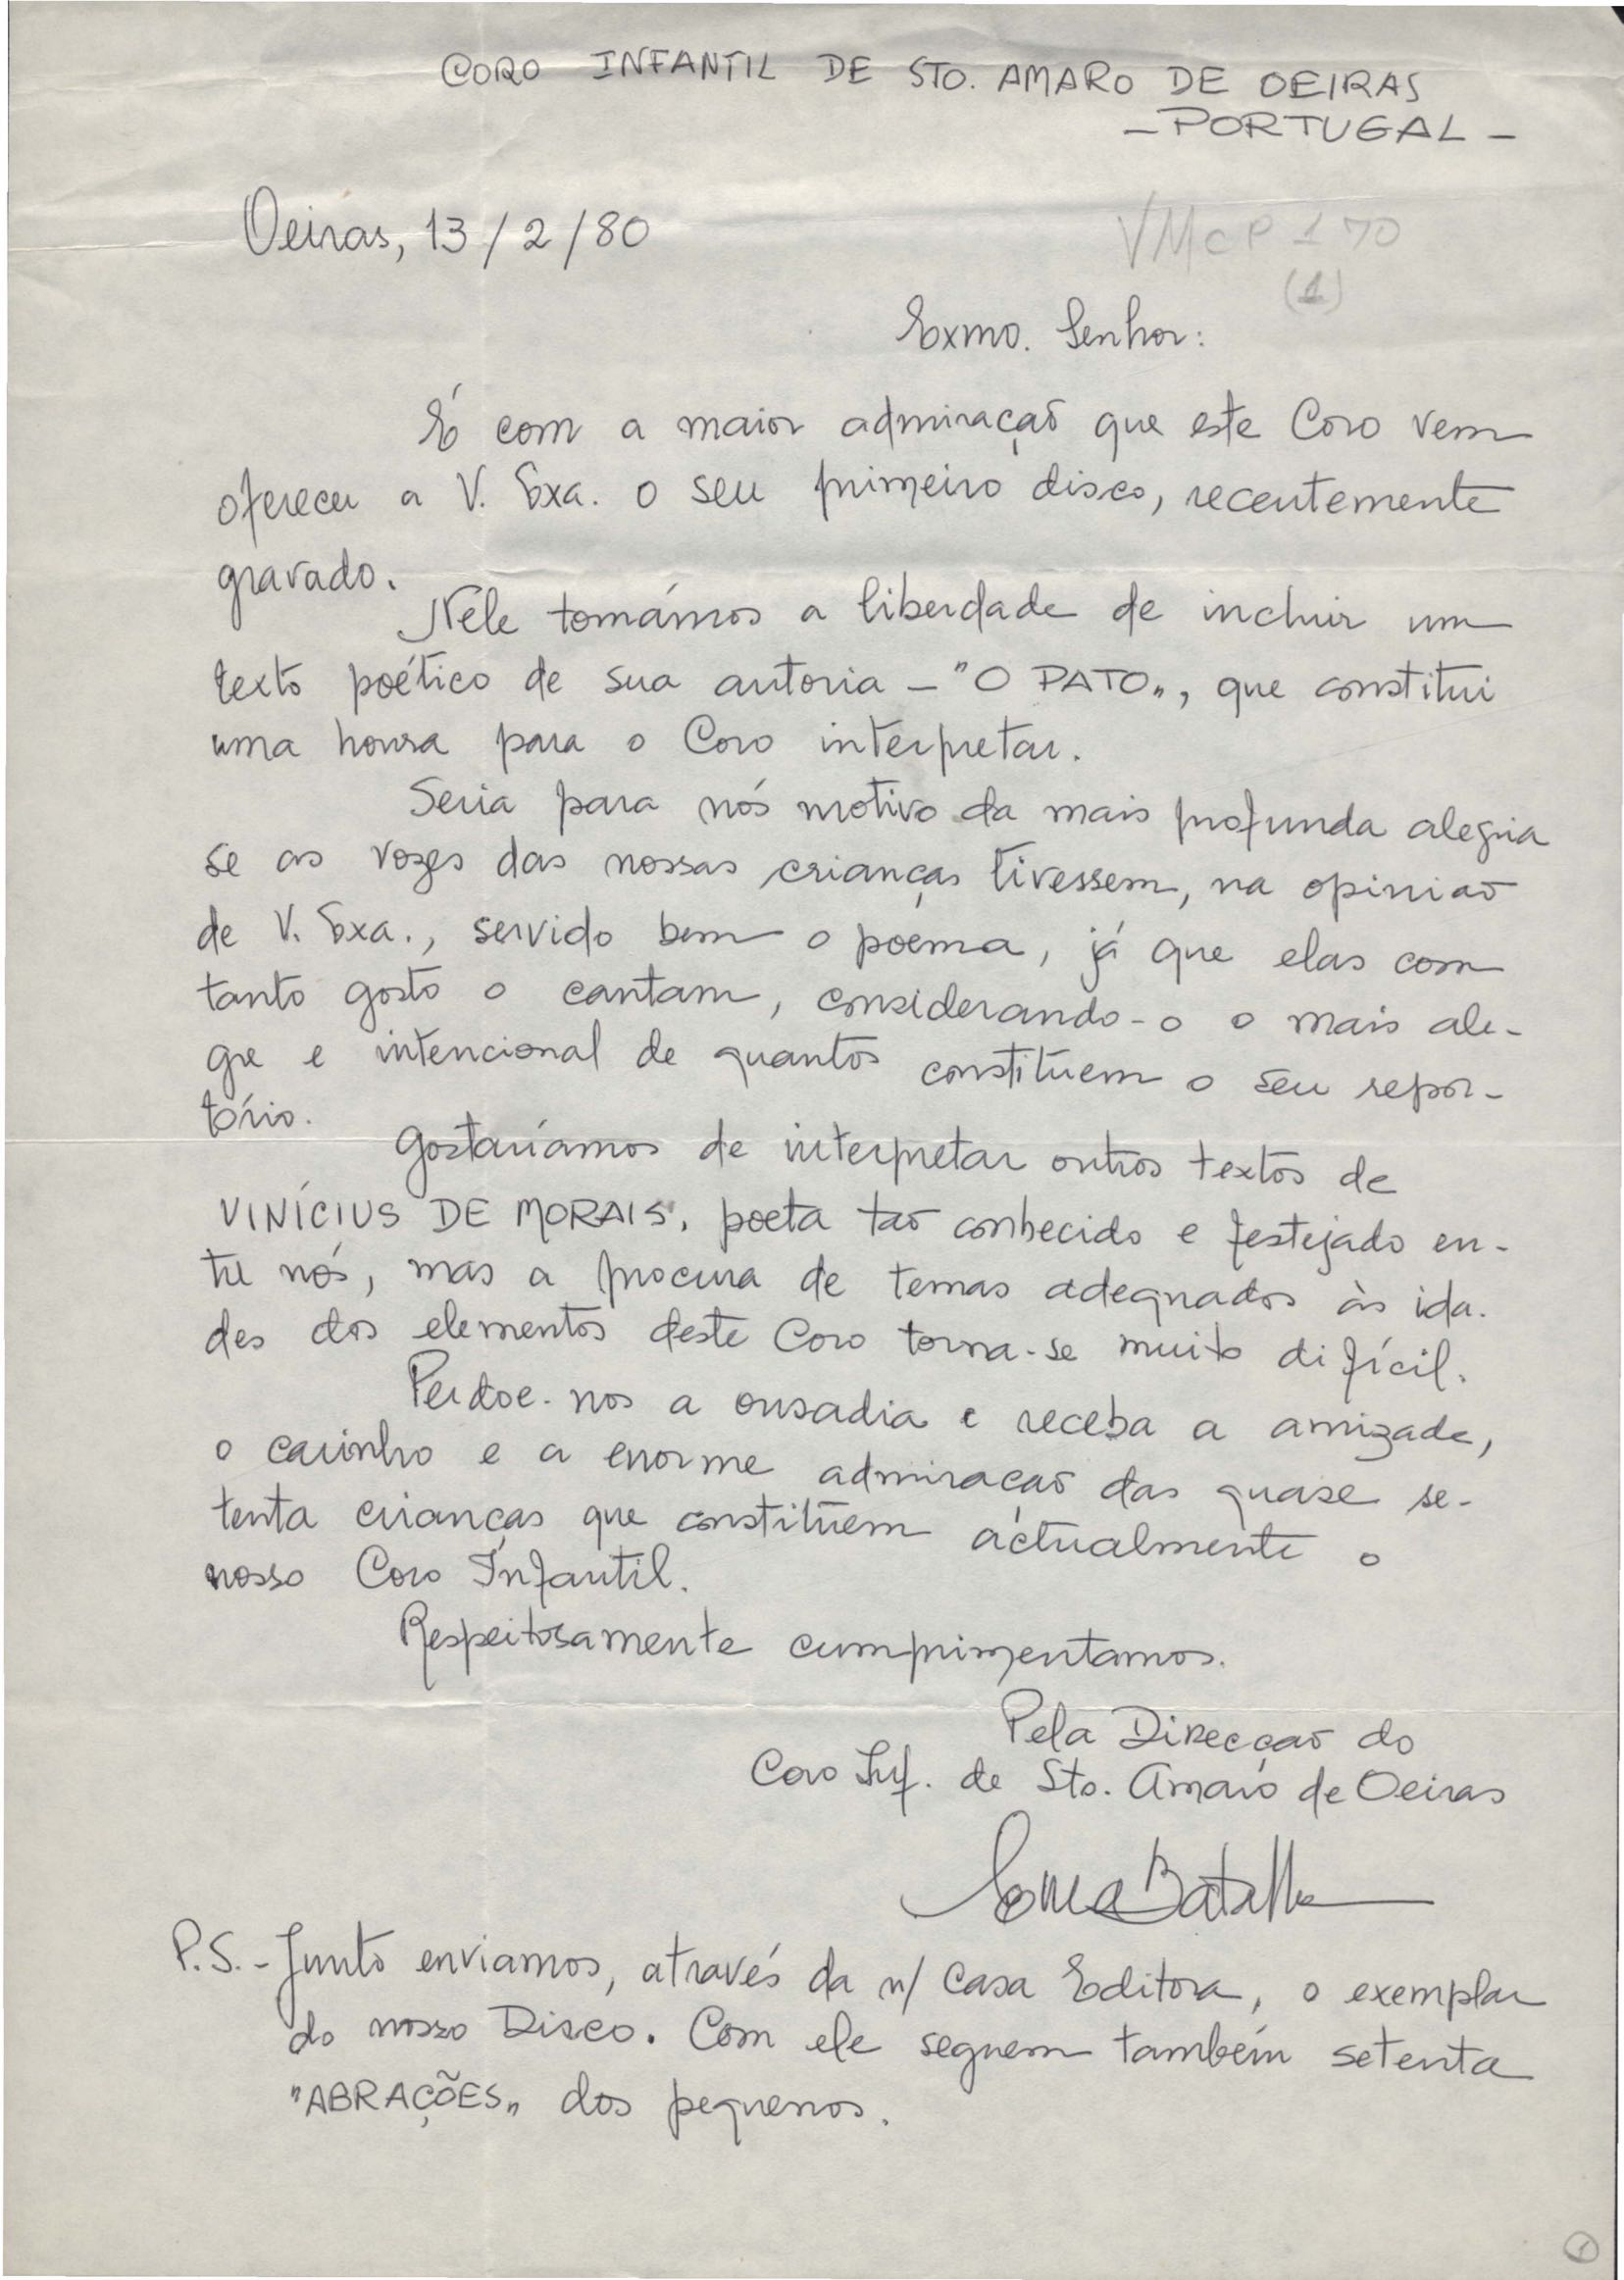 CORO INFANTIL DE STO. AMARO DE OEIRAS
- PORTUGAL -
Oeiras, 13/2/80
VMcP 170
(1)
Exmo. Senhor:
É com a maior admiração que este Coro vem
oferecer a V. Exa. o seu primeiro disco, recentemente
gravado.
Nele tomámos a liberdade de incluir um
texto poético de sua autoria - "O PATO", que constitui
uma honra para o Coro interpretar.
Seria para nós motivo da mais profunda alegria
se as vozes das nossas crianças tivessem, na opinião
de V. Exa., servido bem o poema, já que elas com
tanto gosto o cantam, considerando-o o mais ale-
gre e intencional de quantos constituem o seu repor-
tório.
Gostaríamos de interpretar outros textos de
VINÍCIUS DE MORAIS, poeta tão conhecido e festejado en-
tre nós, mas a procura de temas adequados às ida-
des dos elementos deste Coro torna-se muito difícil.
Perdoe-nos a ousadia e receba a amizade,
o carinho e a enorme admiração das quase se-
tenta crianças que constituem actualmente o
nosso Coro Infantil.
Respeitosamente cumprimentamos.
Pela Direcção do
Coro Inf. de Sto. Amaro de Oeiras
Batalha
P.S. - Junto enviamos, através da n/ Casa Editora, o exemplar
do nosso Disco. Com ele seguem também setenta
"ABRAÇÕES" dos pequenos.
1